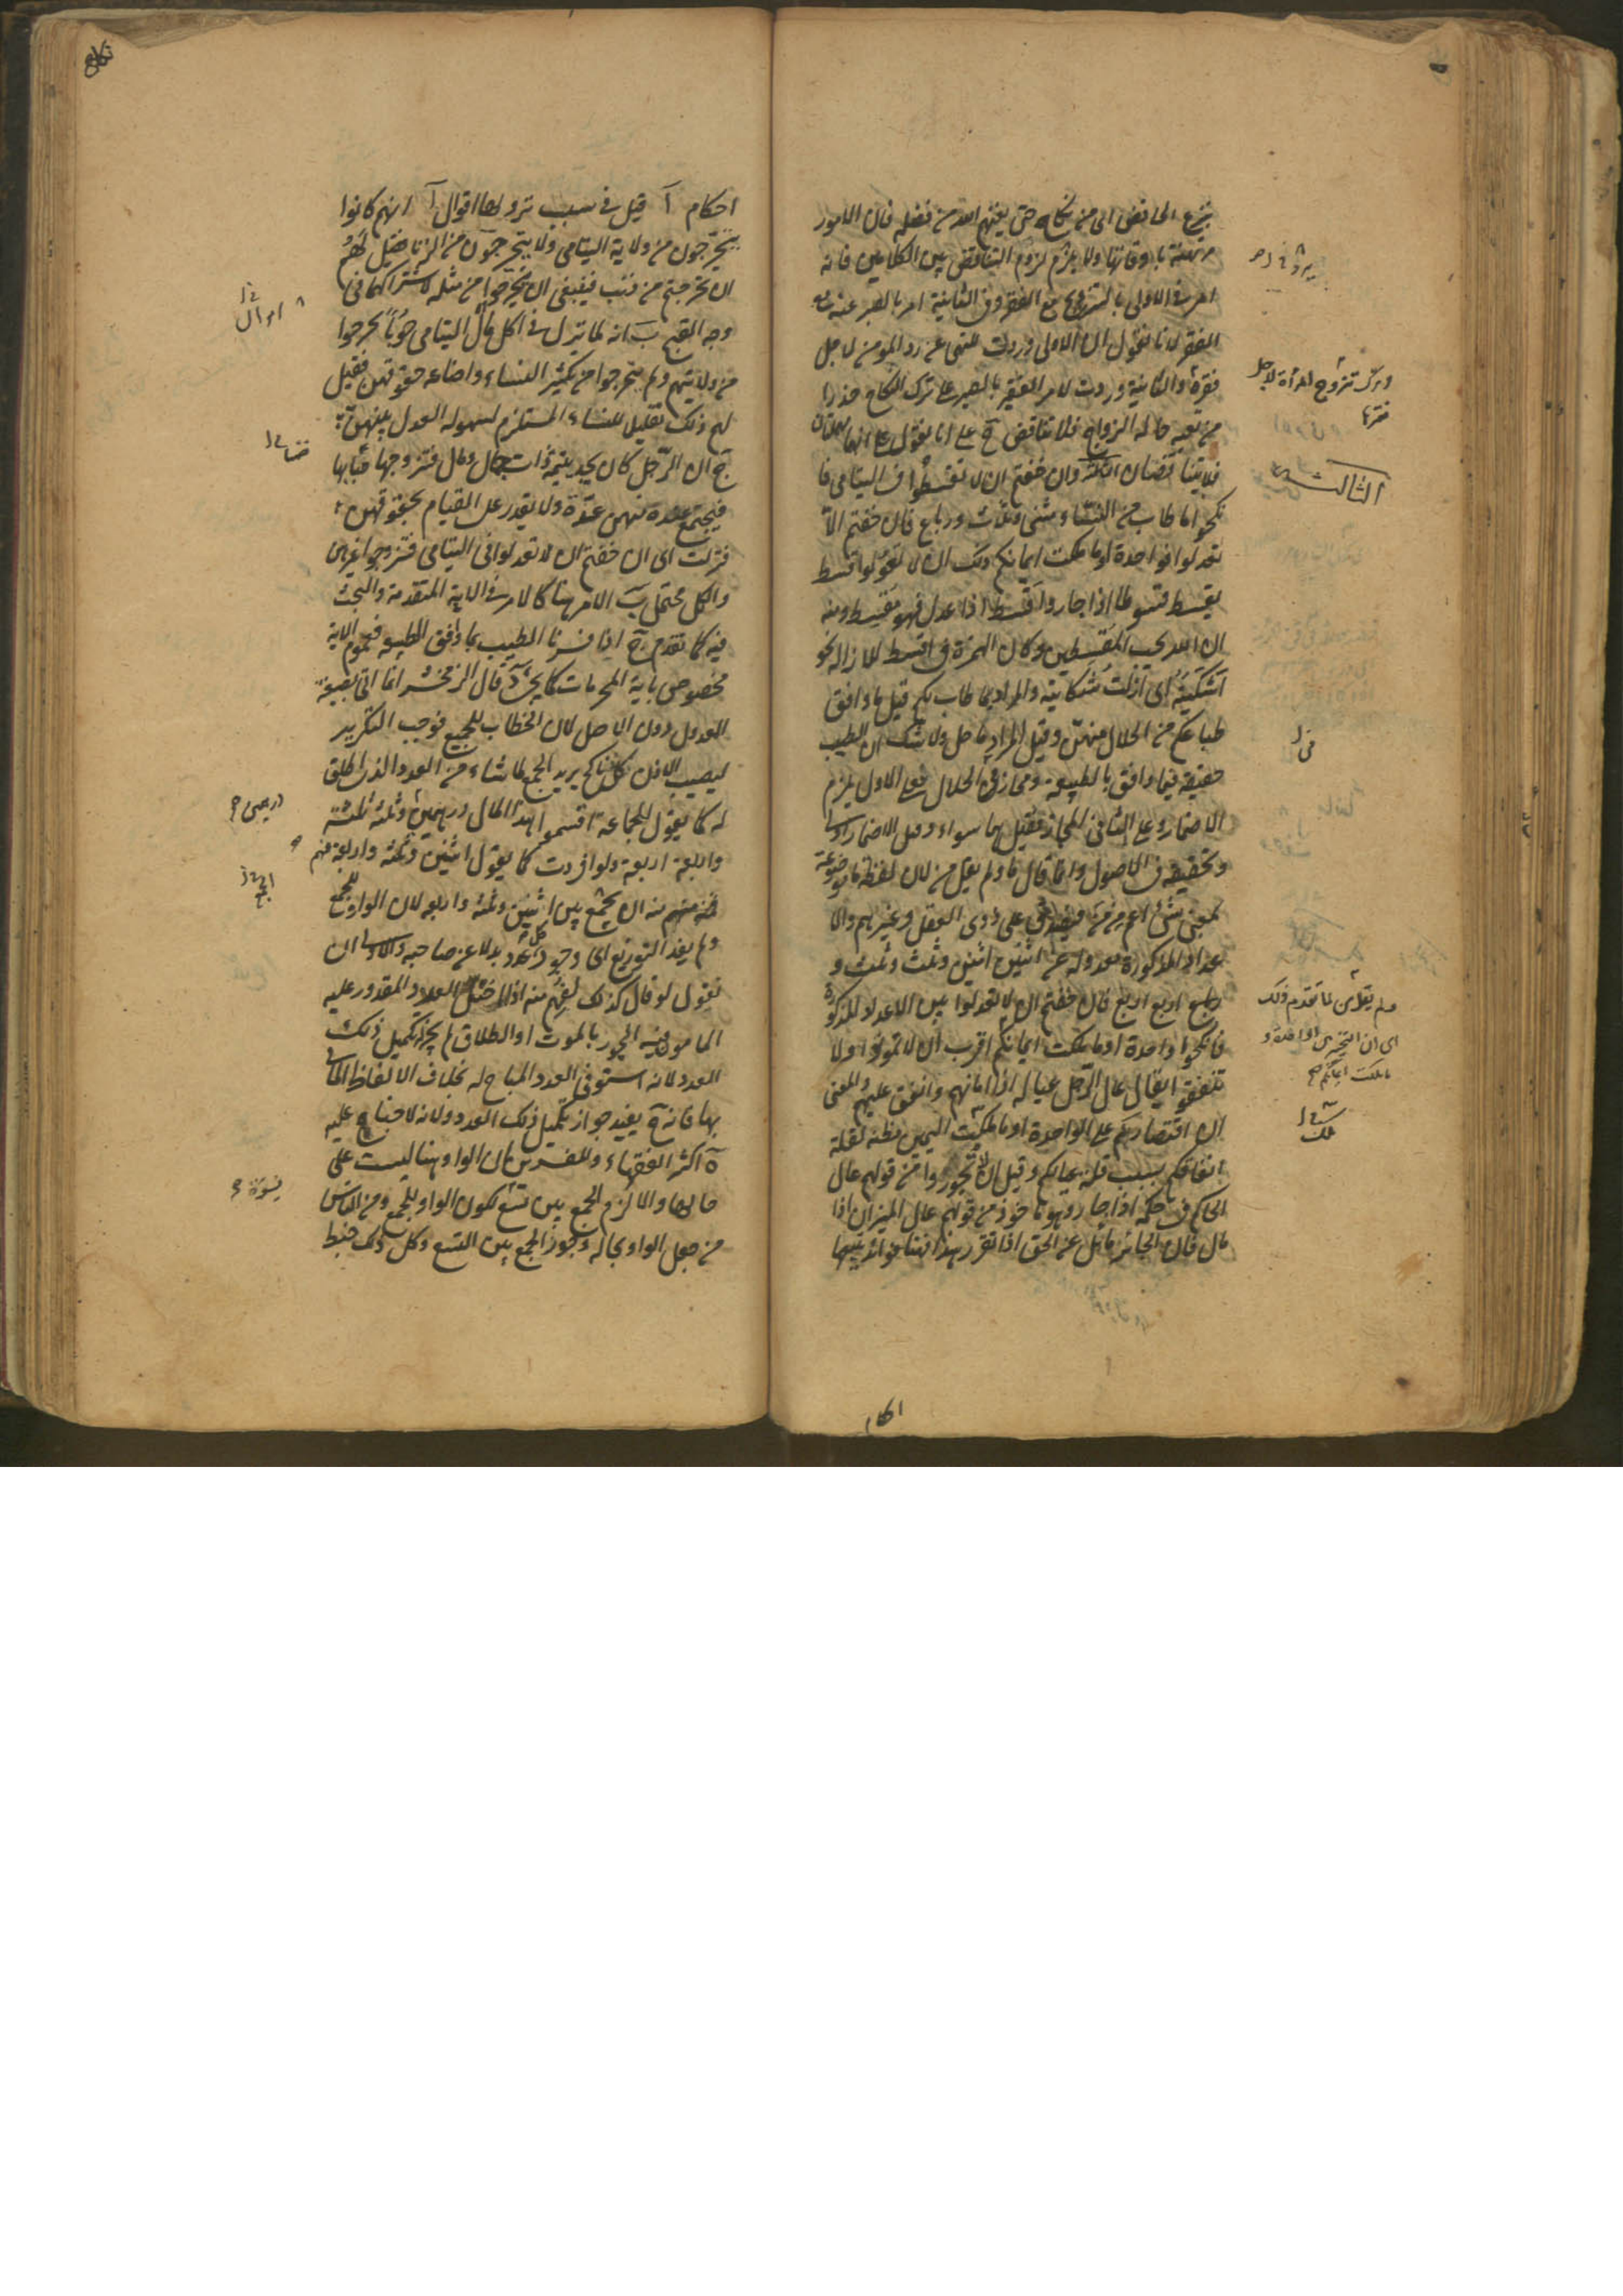 بنزع الخافض اى من نكاح حتى يغنيهم الله من فضله فان الامور
مرتهنة باوقاتها ولا يلزم لزوم التناقض بين الكلامين فانه
امر فى الاولى بالتزويج مع الفقر وفى الثانية امر بالصبر عنه مع
الفقر لانا نقول ان الاولى وردت للنهى عن رد المؤمن لاجل
فقره والثانية وردت لامر الفقير بالصبر على ترك النكاح حذرا
من تعبه حالة الزواج فلا تناقض ح على انا نقول على انهما مهملتان
فلا يتناقضان الثالثة وان خفتم ان لا تقسطوا فى اليتامى فا
نكحوا ما طاب من النساء مثنى وثلاث ورباع فان خفتم الا
تعدلوا فواحدة او ما ملكت ايمانكم ذلك ان لا تعولوا قسط
يقسط قسوطا اذا جار واقسط اذا عدل فهو مقسط ومنه
ان الله يحب المقسطين وكان الهمزة فى اقسط للازالة نحو
اشكيته اى ازلت شكايته والمراد بما طاب لكم قيل ما وافق
طباعكم من الحلال منهن وقيل المراد ما حل ولا شك ان الطيب
حقيقة فيما وافق بالطبيعة ومجاز فى الحلال فعلى الاول يلزم
الاضمار وعلى الثانى المجاز فقيل هما سواء وقيل الاضمار اولى
وتحقيقه فى الاصول وانما قال ما ولم يقل من لان لفظة ما موضوعة
لمعنى شئ اعم من من فيصدق على ذوى العقل وغيرهم والا
عداد المذكورة معدولة عن اثنين اثنين وثلث وثلث و
اربع اربع فان خفتم ان لا تعدلوا بين الاعداد المذكورة
فانكحوا واحدة او ما ملكت ايمانكم اقرب ان لا تمونوا ولا
تنفقوا يقال عال الرجل عياله اذا مانهم وانفق عليهم والمعنى
ان اقتصاركم على الواحدة او ما ملكت اليمين مظنة لقلة
انفاقكم بسبب قلة عيالكم وقيل ان لا تجوروا من قولهم عال
الحاكم فى حكمه اذا جار وهو ماخوذ من قولهم عال الميزان اذا
مال فان الجائر مائل عن الحق اذا تقرر هذا فهنا فوائد يتبعها
وترك تزوج المرأة لاجل
فقرها
الثالثة
ولم يقل من لما تقدم ذلك
اى ان التخيير بين الواحدة و
ما ملكت ايمانكم صح
احكام
نكاح
احكام آ قيل فى سبب نزولها اقوال آ انهم كانوا
يتحرجون من ولاية اليتامى ولا يتحرجون من الزنا فقيل لهم
ان تحرجتم من ذنب فينبغى ان تتحرجوا من مثله لاشتراكهما فى
وجه القبح ب انه لما نزل فى اكل مال اليتامى حوبا تحرجوا
من ولايتهم ولم يتحرجوا من تكثير النساء واضاعة حقوقهن فقيل
لهم ذلك تقليل للنساء المستلزم لسهولة العدل بينهن
ج ان الرجل كان يجد يتيمة ذات جمال ومال فتزوجها
فيجتمع عنده منهن عدة ولا يقدر على القيام بحقوقهن
فنزلت اى ان خفتم ان لا تعدلوا فى اليتامى فتزوجوا غيرهن
والكل محتمل ب الامر هنا كالامر فى الاية المتقدمة والبحث
فيه كما تقدم ج اذا فسرنا الطيب بما وافق الطبيعة فعموم الاية
مخصوص باية المحرمات كما يجئ د قال الزمخشرى انما اتى بصيغة
العدول دون الاصل لان الخطاب للجميع فوجب التكرير
ليصيب الاذن كل ناكح يريد الجمع ما شاء من العدد الذى اطلق
له كما يقول للجماعة اقتسموا هذا المال درهمين وثلثة ثلثة
واربعة اربعة ولو افردت كما يقول اثنين وثلثة واربعة فهم
منه ان يجمع بين اثنين وثلثة واربعة لان الواو للجمع
ولم يفد التوزيع اى وجود كل عدد بدلا عن صاحبه والاولى ان
نقول لو قال كذلك لفهم منه اذا اختل العدد المقدور عليه
المامون فيه الجور بالموت او الطلاق لم يجز تكميل ذلك
العدد لانه استوفى العدد المباح له بخلاف الالفاظ الماتى
بها فانه ح يفيد جواز تكميل ذلك العدد ولانه لا جناح عليه
ه اكثر الفقهاء والمفسرين على ان الواو هنا ليست على
حالها والا لزم الجمع بين تسع لكون الواو للجمع ومن الناس
من جعل الواو بحاله وجوز الجمع بين التسع وكل ذلك خبط
اموال
درهمين صح
الجمع
نسوة صح